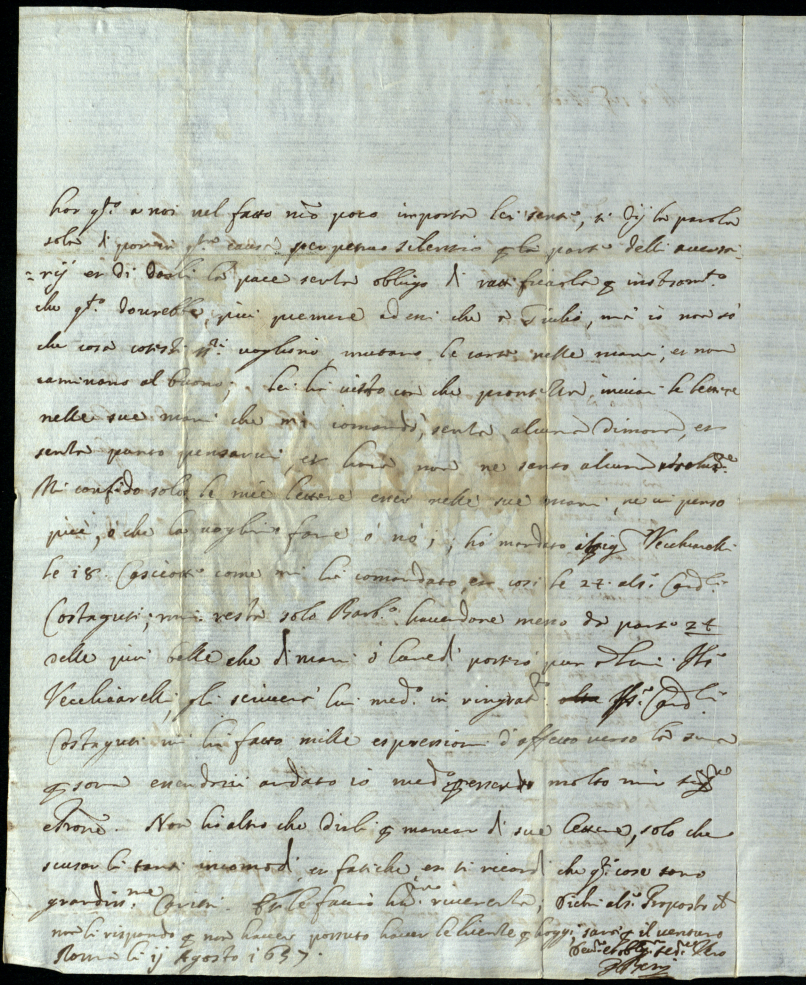 hor q.to a noi nel fatto nro poco importa lei senta, si dij la parola
sola di porre in q.ta causa perpetuo silentio q la parte delli avversa-
=rij et di darli la pace senza obligo di ratificarla q instrom.to
che q.to dovrebbe, più premere ad essi che a Giulio, mà io non sò
che cosa cotesti ss.ri vogliono, mutano le carte nelle mani, et non
caminano al buono; lei hà visto con che prontezza, inviai le lettere
nelle sue mani che mi comandò, senza alcuna dimora, et
senza punto pensarvi, et hora non ne sento alcuna
Mi confido solo le mie lettere esser nelle sue mani, ne vi penso
più, ò che la voglino fare ò nò; hò mandato Vecchiarelli
le 18. come mi hà comandato, et così le 24. al s.r Card.l
Costaguti; mi resta solo Barb.o havendone messo da parte 24
delle più belle che dimani ò lunedì portrò pur Ill.o
Vecchiarelli, gli scriverà lui med.o in ringrat.to Ill.o Card.l
Costaguti mi hà fatto mille espressioni d'affetto verso la sua
q.sona essendovi andato io med.o essendo molto mio
e Prone. Non hò altro che dirli q mancar di sue lettere, solo che
scusar li tanti incomodi, et fatiche, et si ricordi che q.te cose sono
grandiss.me Carità. Et le faccio hum. riverenza, Dichi al s.r Proposto
non li rispondo q non haver possuto haver la q hoggi, sarà q il venturo
Roma li ij Agosto 1657.